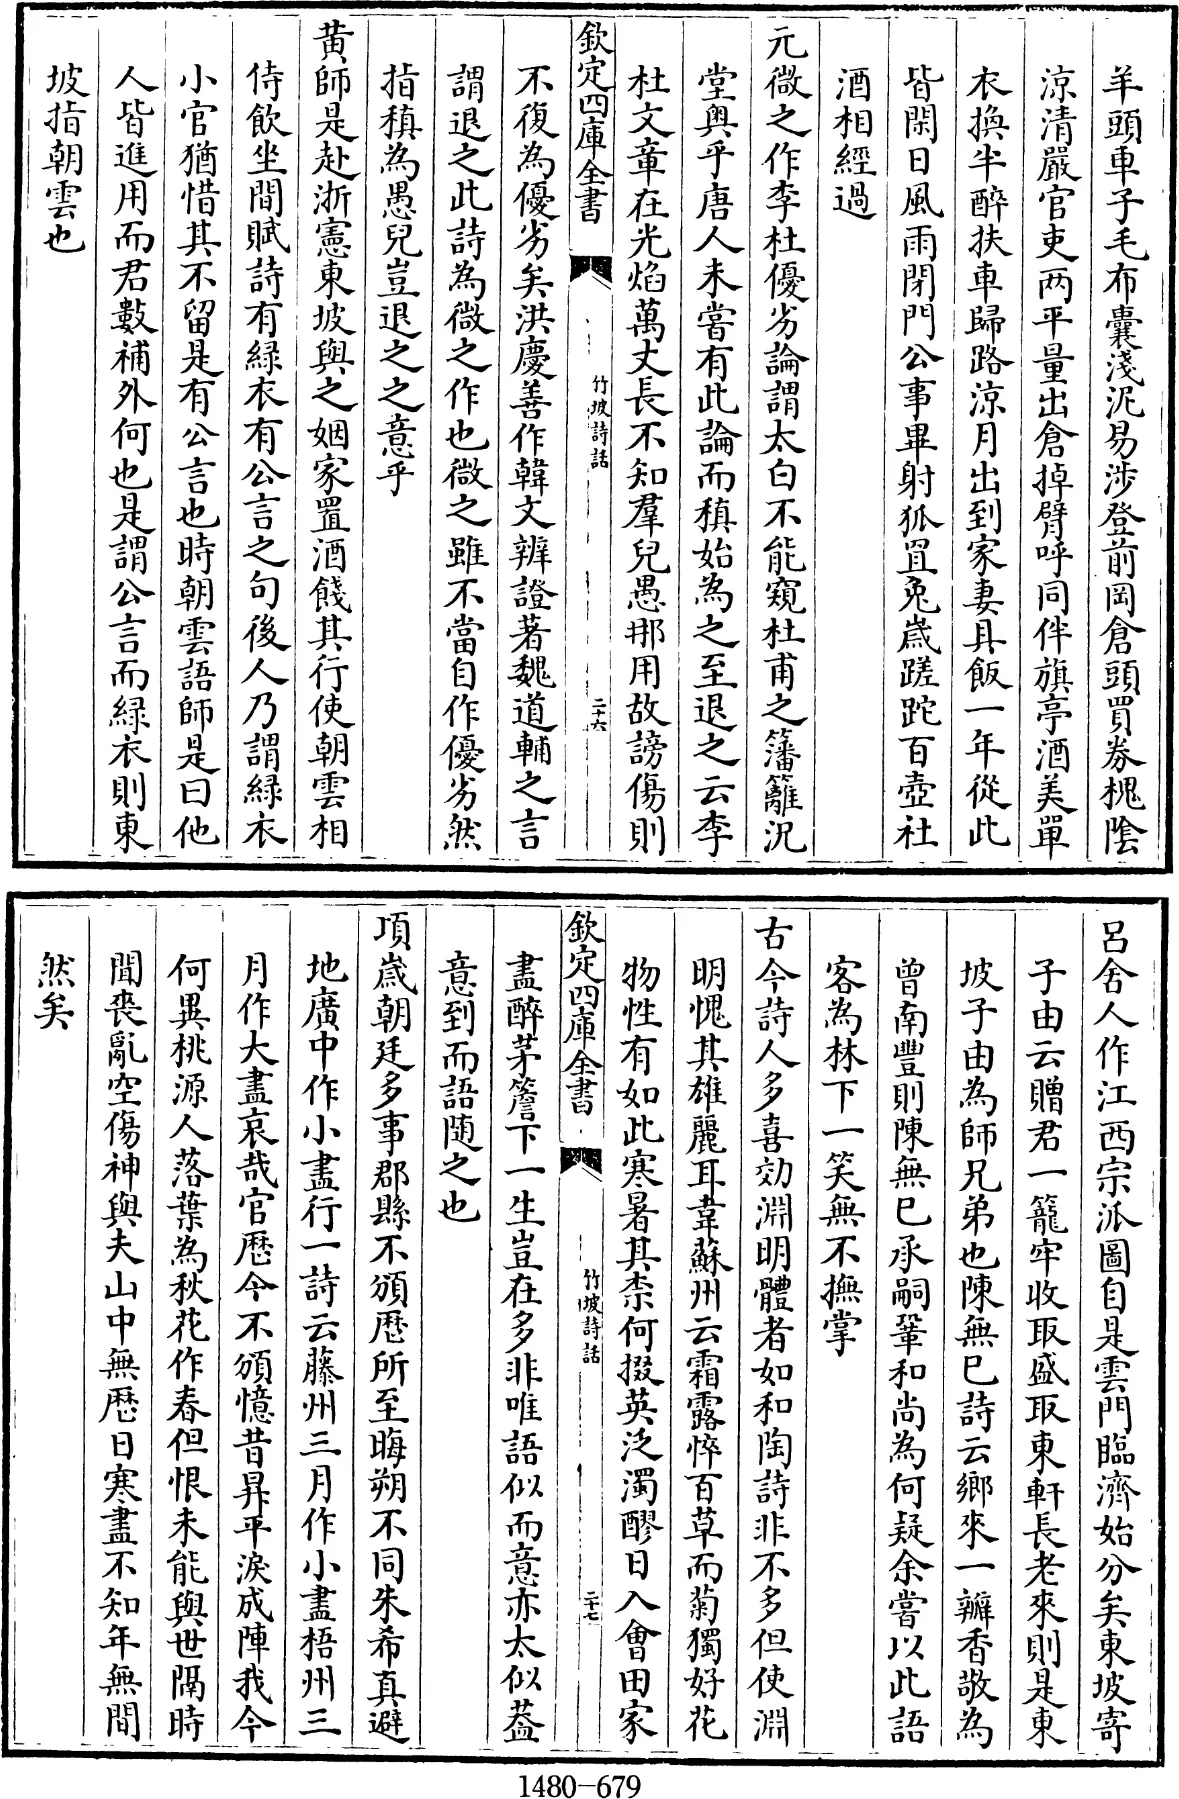 羊頭車子毛布囊淺泥易涉登前岡倉頭買券槐陰
涼清嚴官吏两平量出倉掉臂呼同伴旗亭酒美單
衣換半醉扶車歸路涼月出到家妻具飯一年從此
皆閑日風雨閉門公事畢射狐罝兔歲蹉跎百壺社
酒相經過
元微之作李杜優劣論謂太白不能窺杜甫之籓籬況
堂奥乎唐人未嘗有此論而稹始為之至退之云李
杜文章在光熖萬丈長不知羣兒愚那用故謗傷則
欽定四庫全書
竹坡詩話
二十六
不復為優劣矣洪慶善作韓文辨證著魏道輔之言
謂退之此詩為微之作也微之雖不當自作優劣然
指稹為愚兒豈退之之意乎
黄師是赴浙憲東坡與之姻家置酒餞其行使朝雲相
侍飲坐間賦詩有緑衣有公言之句後人乃謂緑衣
小官猶惜其不留是有公言也時朝雲語師是曰他
人皆進用而君數補外何也是謂公言而緑衣則東
坡指朝雲也
吕舍人作江西宗派圖自是雲門臨濟始分矣東坡寄
子由云贈君一籠牢收取盛取東軒長老來則是東
坡子由為師兄弟也陳無巳詩云鄉來一瓣香敬為
曾南豐則陳無巳承嗣鞏和尚為何疑余嘗以此語
客為林下一笑無不撫掌
古今詩人多喜効淵明體者如和陶詩非不多但使淵
明愧其雄麗耳韋蘇州云霜露悴百草而菊獨好花
物性有如此寒暑其柰何掇英泛濁醪日入會田家
欽定四庫全書
竹坡詩話
二十七
盡醉茅簷下一生豈在多非唯語似而意亦太似葢
意到而語随之也
項歲朝廷多事郡縣不頒厯所至晦朔不同朱希真避
地廣中作小盡行一詩云藤州三月作小盡梧州三
月作大盡哀哉官厯今不頒憶昔昇平淚成陣我今
何異桃源人落葉為秋花作春但恨未能與世隔時
聞喪亂空傷神與夫山中無厯日寒盡不知年無間
然矣
1480-679